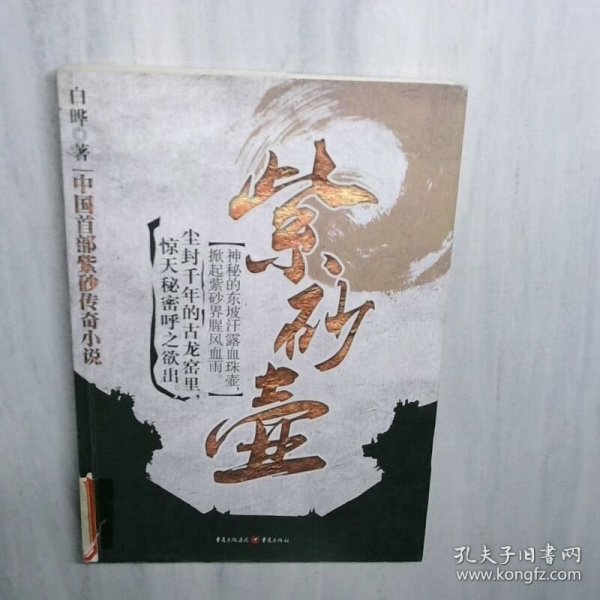 白晔 著
中国首部紫砂传奇小说
紫砂壶
神秘的东坡汗露血珠壶，
掀起紫砂界腥风血雨。
尘封千年的古龙窑里，
惊天秘密呼之欲出。
重庆出版集团 重庆出版社
孔夫子旧书网
www.kongfz.com